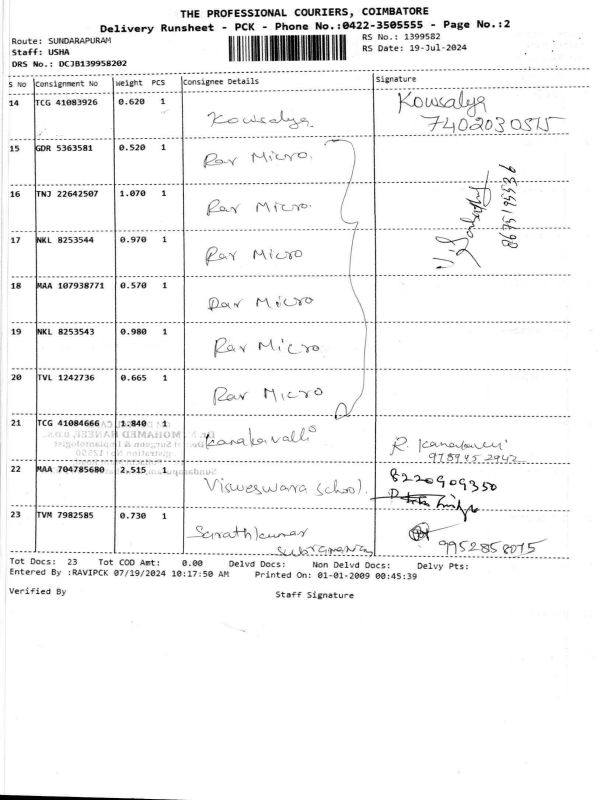 THE PROFESSIONAL COURIERS, COIMBATORE
Delivery Runsheet - PCK - Phone No.:0422-3505555 - Page No.:2
Route: SUNDARAPURAM
RS No.: 1399582
Staff: USHA
RS Date: 19-Jul-2024
DRS No.: DCJB139958202
S No Consignment No Weight PCS Consignee Details Signature
14 TCG 41083926 0.620 1 Kowsalya Kowsalya
7402030575
15 GDR 5363581 0.520 1 Rav Micro
16 TNJ 22642507 1.070 1 Rav Micro
8675195536
17 NKL 8253544 0.970 1 Rav Micro
18 MAA 107938771 0.570 1 Rav Micro
19 NKL 8253543 0.980 1 Rav Micro
20 TVL 1242736 0.665 1 Rav Micro
21 TCG 41084666 1.840 1 Kanakavalli
22 MAA 704785680 2.515 1 Visweswara School. 8220909350
23 TVM 7982585 0.730 1 Sarathkumar
9952858075
Tot Docs: 23 Tot COD Amt: 0.00 Delvd Docs: Non Delvd Docs: Delvy Pts:
Entered By :RAVIPCK 07/19/2024 10:17:50 AM Printed On: 01-01-2009 00:45:39
Verified By
Staff Signature